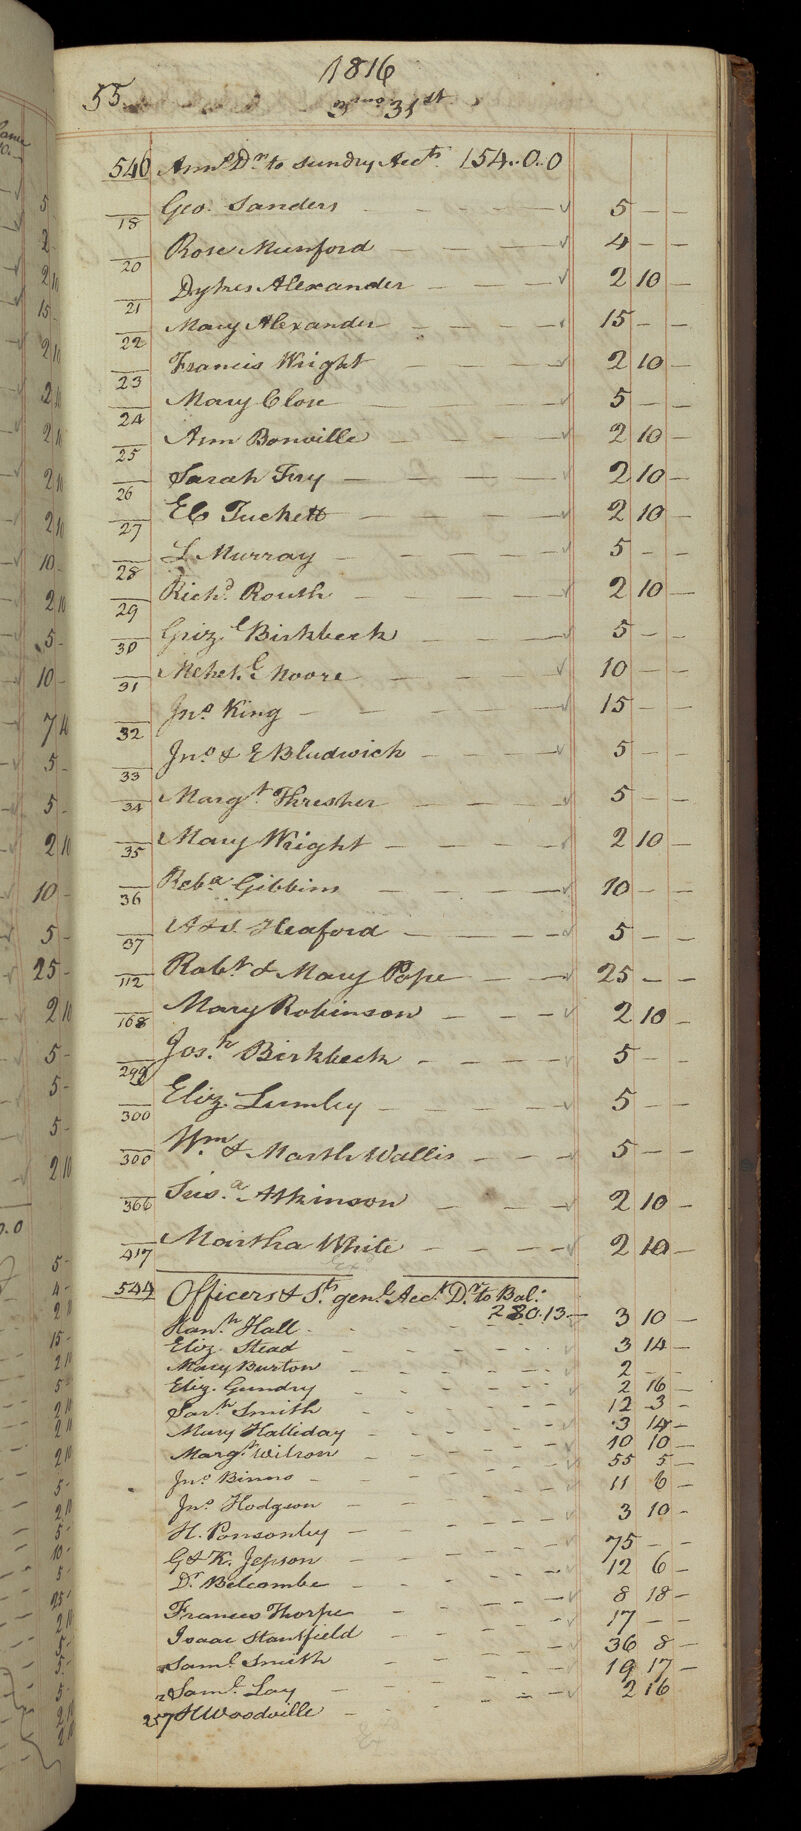 1816
55. 3mo 31st
546 Annts Dr. to Sundry Accts. 154..0..0
18 Geo. Sanders — — — — 5 — —
20 Rose Munford — — — 4 — —
21 Dykes Alexander — — — 2 10 —
22 Mary Alexander — — — — 15 — —
23 Francis Wright — — — 2 10 —
24 Mary Close — — — 5 — —
25 Ann Bonville — — — — 2 10 —
26 Sarah Fry — — — — 2 10 —
27 Tuckett — — — 2 10 —
28 L Murray — — — — 5 — —
29 Richd. Routh — — — — 2 10 —
30 Griz.l Birkbeck — — — 5 — —
31 Mehet.l Moore — — — 10 — —
32 Jno. King — — — — 15 — —
33 Jno. & E Bludwick — — — 5 — —
34 Margt. Thresher — — — 5 — —
35 Mary Wright — — — — 2 10 —
36 Reba Gibbins — — — — 10 — —
37 Heaford — — — — 5 — —
112 Robt. & Mary Pope — — 25 — —
168 Mary Robinson — — — 2 10 —
299 Jos.h Birkbeck — — — — 5 — —
300 Eliz. Lumley — — — — 5 — —
300 Wm. & Marth Wallis — — — 5 — —
366 Sus.a Atkinson — — — 2 10 —
417 Martha White — — — — 2 10 —
544 Officers & Sts. genl. Acct. Dr. to Bal:
280.13 —
Hanh. Hall — 3 10 —
Eliz. Stead — 3 14 —
Mary Burton — 2 — —
Eliz. Gundry — 2 16 —
Sarh. Smith — 12 3 —
Mary Halliday — 3 14 —
Margt. Wilson — 10 10 —
Jno. Binns — 55 5 —
Jno. Hodgson — 11 6 —
H. Ponsonby — 3 10 —
G & K. Jepson — 75 — —
Dr. Belcombe — 12 6 —
Frances Thorpe — 8 18 —
Isaac Stantfield — 17 — —
Saml. Smith — 36 8 —
Saml. Lay — 19 17 —
257 H Woodville — 2 16